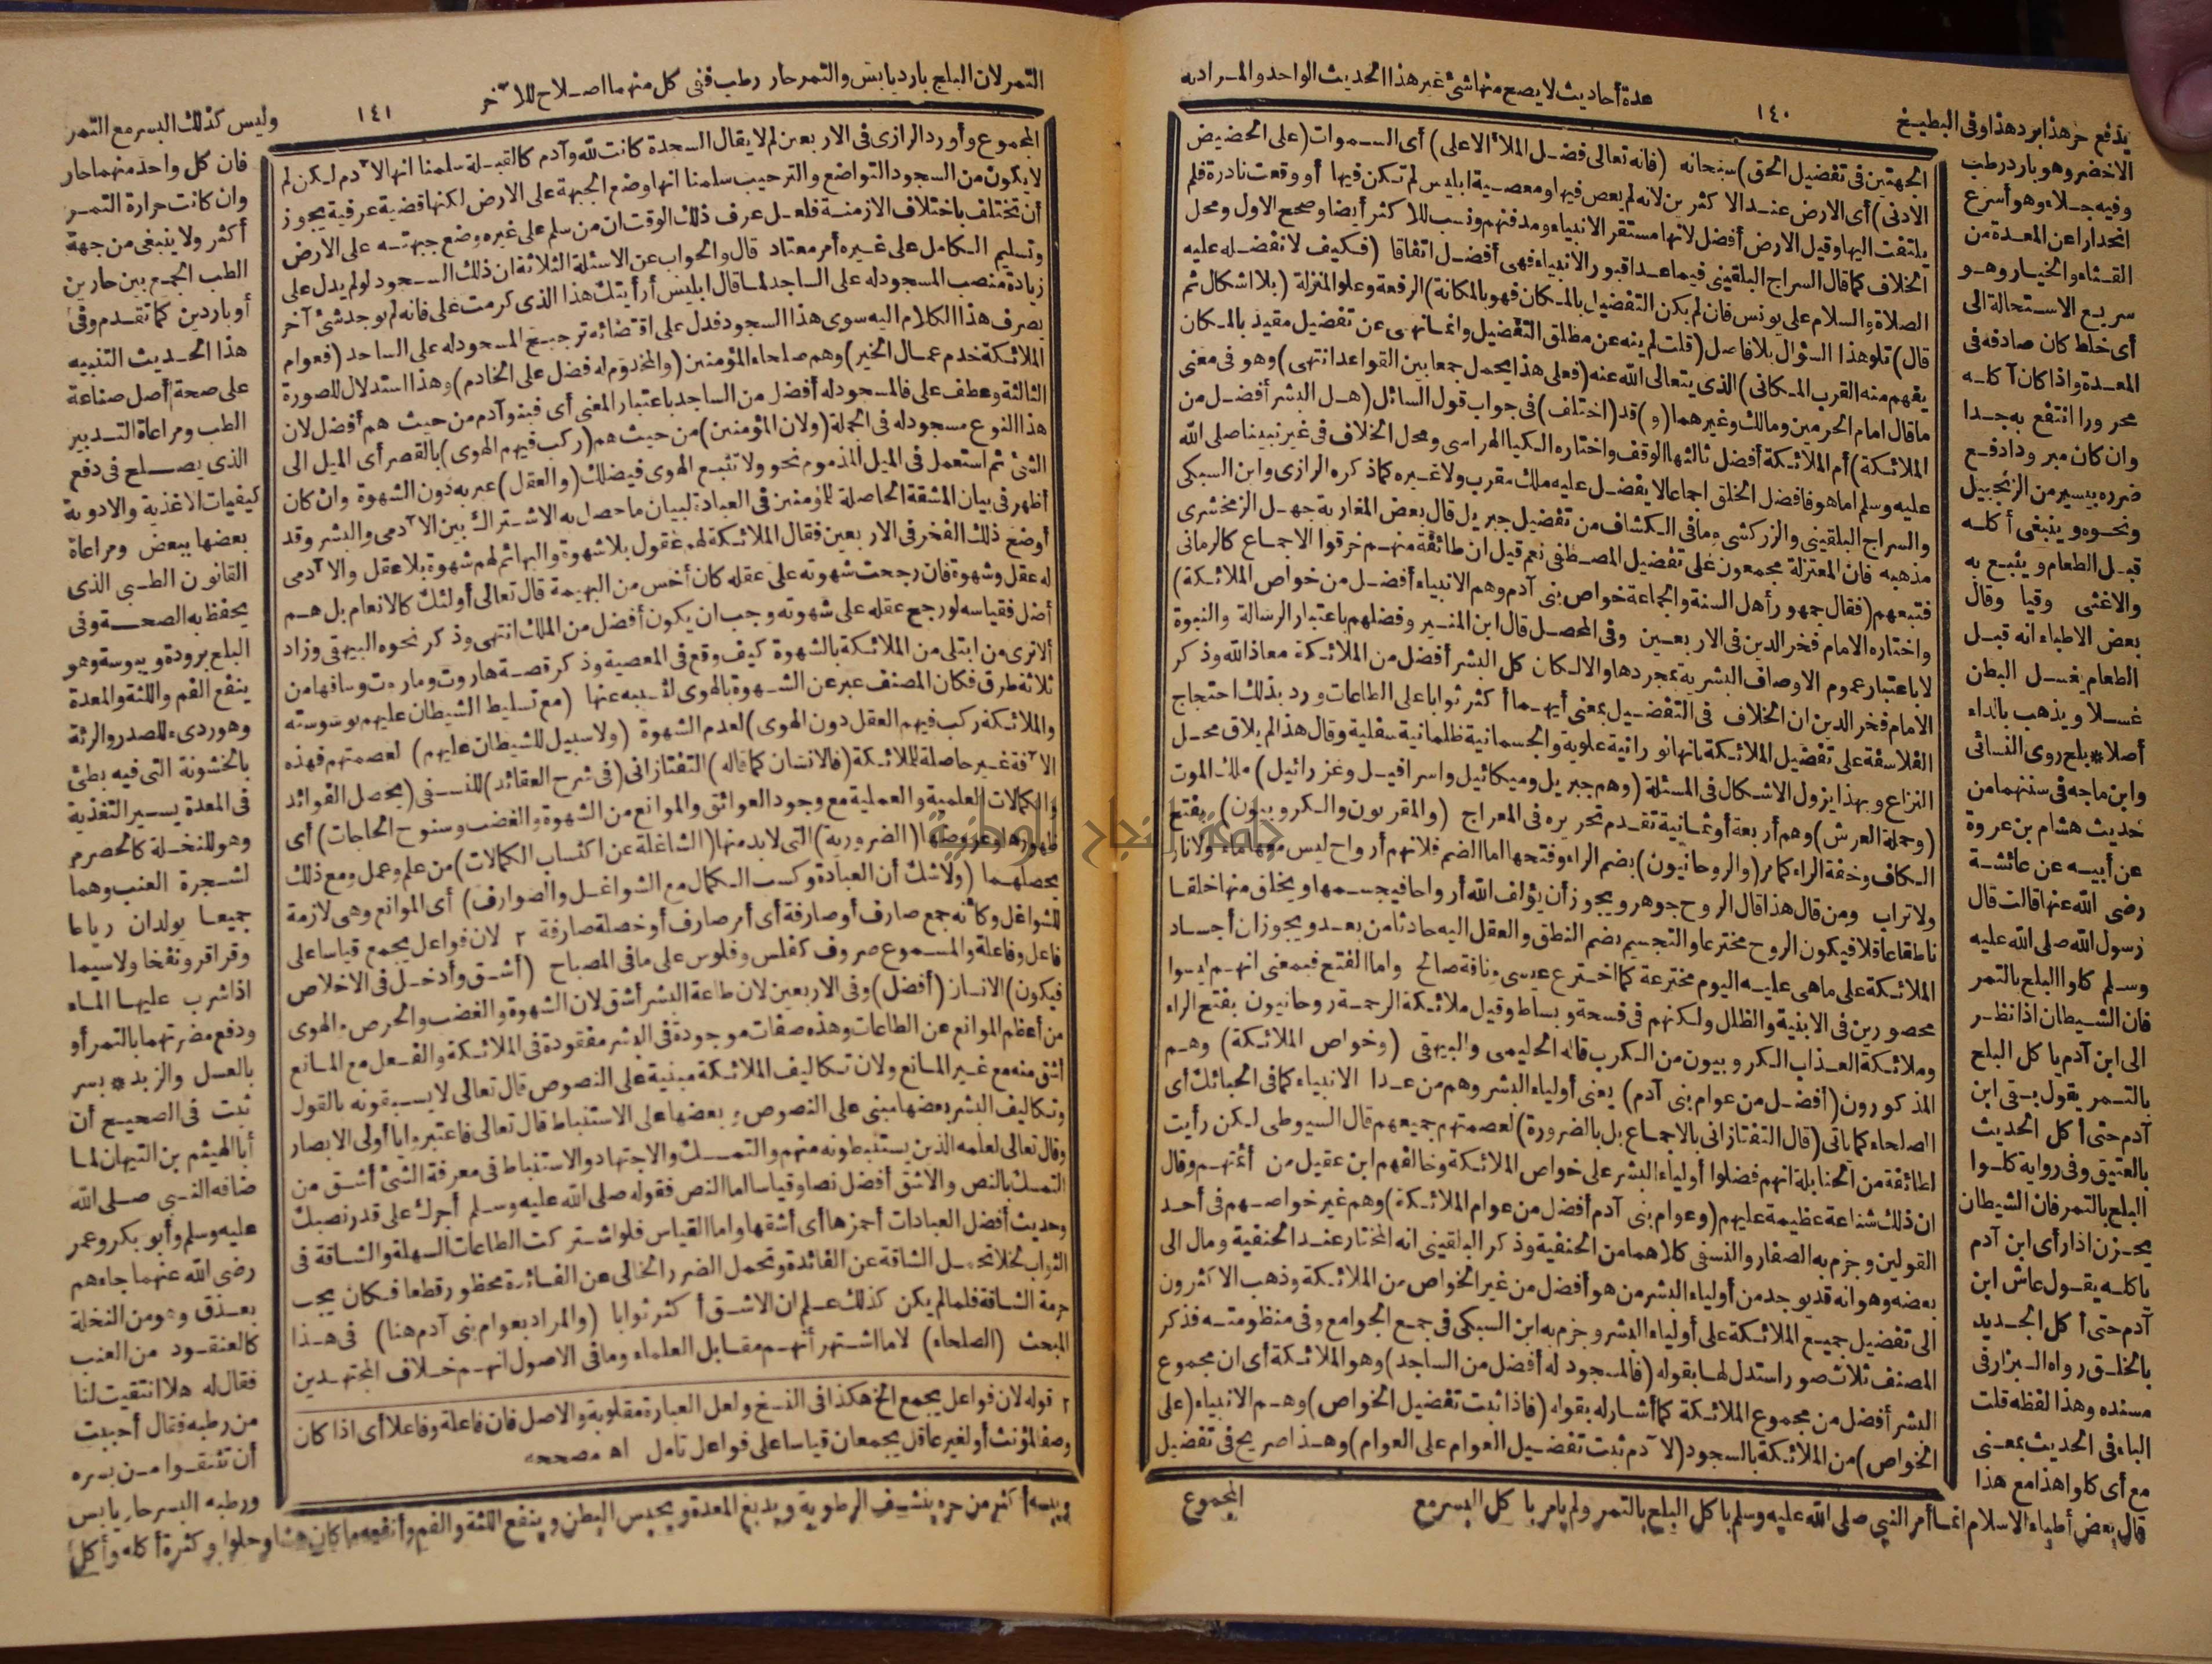 عدة أحاديث لا يصح منها شئ غير هذا الحديث الواحد والمراد به
١٤٠
يدفع حر هذا برد هذا وفى البطيخ
الاخضر وهو بارد رطب
وفيه جلاء وهو أسرع
انحدارا عن المعدة من
القثاء والخيار وهو
سريع الاستحالة الى
أى خلط كان صادفه فى
المعدة واذا كان آكله
محرورا انتفع به جدا
وان كان مبرودا دفع
ضرره بيسير من الزنجبيل
ونحوه وينبغى أكله
قبل الطعام ويتبع به
والا غثى وقيا وقال
بعض الاطباء انه قبل
الطعام يغسل البطن
غسلا ويذهب بالداء
أصلا * بلح روى النسائى
وابن ماجه فى سننهما من
حديث هشام بن عروة
عن أبيه عن عائشة
رضى الله عنها قالت قال
رسول الله صلى الله عليه
وسلم كلوا البلح بالتمر
فان الشيطان اذا نظر
الى ابن آدم يأكل البلح
بالتمر يقول بقى ابن
آدم حتى أكل الحديث
بالعتيق وفى رواية كلوا
البلح بالتمر فان الشيطان
يحزن اذا رأى ابن آدم
يأكله يقول عاش ابن
آدم حتى أكل الجديد
بالخلق رواه البزار فى
مسنده وهذا لفظه قلت
الباء فى الحديث بمعنى
مع أى كلوا هذا مع هذا
قال بعض أطباء الاسلام انما أمر النبى صلى الله عليه وسلم بأكل البلح بالتمر ولم يأمر بأكل البسر مع
الجهتين فى تفضيل الحق) سبحانه (فانه تعالى فضل الملأ الاعلى) أى السموات (على الحضيض
الادنى) أى الارض عند الاكثرين لانه لم يعص فيها ومعصية ابليس لم تكن فيها أو وقعت نادرة فلم
يلتفت اليها وقيل الارض أفضل لانها مستقر الانبياء ومدفنهم ونسب للاكثر أيضا وصحح الاول ومحل
الخلاف كما قال السراج البلقينى فيما عدا قبور الانبياء فهى أفضل اتفاقا (فكيف لا تفضله عليه
الصلاة والسلام على يونس فان لم يكن التفضيل بالمكان فهو بالمكانة) الرفعة وعلو المنزلة (بلا اشكال ثم
قال) تلو هذا السؤال بلا فاصل (قلت لم ينه عن مطلق التفضيل وانما نهى عن تفضيل مقيد بالمكان
يفهم منه القرب المكانى) الذى يتعالى الله عنه (فعلى هذا يحمل جمعا بين القواعد انتهى) وهو فى معنى
ما قال امام الحرمين ومالك وغيرهما (و) قد (اختلف) فى جواب قول السائل (هل البشر أفضل من
الملائكة) أم الملائكة أفضل ثالثها الوقف واختاره الكيا الهراسى ومحل الخلاف فى غير نبينا صلى الله
عليه وسلم اما هو فأفضل الخلق اجماعا لا يفضل عليه ملك مقرب ولا غيره كما ذكره الرازى وابن السبكى
والسراج البلقينى والزركشى وما فى الكشاف من تفضيل جبريل قال بعض المغاربة جهل الزمخشرى
مذهبه فان المعتزلة مجمعون على تفضيل المصطفى نعم قيل ان طائفة منهم خرقوا الاجماع كالرمانى
فتبعهم (فقال جمهور أهل السنة والجماعة خواص بنى آدم وهم الانبياء أفضل من خواص الملائكة)
واختاره الامام فخر الدين فى الاربعين وفى المحصل قال ابن المنير وفضلهم باعتبار الرسالة والنبوة
لا باعتبار عموم الاوصاف البشرية بمجردها والا لكان كل البشر أفضل من الملائكة معاذ الله وذكر
الامام فخر الدين ان الخلاف فى التفضيل بمعنى أيهما أكثر ثوابا على الطاعات ورد بذلك احتجاج
الفلاسفة على تفضيل الملائكة بانها نورانية علوية والجسمانية ظلمانية سفلية وقال هذا لم يلاق محل
النزاع وبهذا يزول الاشكال فى المسئلة (وهم جبريل وميكائيل واسرافيل وعزرائيل) ملك الموت
(وحملة العرش) وهم أربعة أو ثمانية تقدم تحريره فى المعراج (والمقربون والكروبيون) بفتح
الكاف وخفة الراء كما مر (والروحانيون) بضم الراء وفتحها اما الضم فلانهم أرواح ليس معها ماء ولا نار
ولا تراب ومن قال هذا قال الروح جوهر ويجوز أن يؤلف الله أرواحا فيجسمها ويخلق منها خلقا
ناطقا عاقلا فيكون الروح مخترعا والتجسيم بضم النطق والعقل اليه حادثا من بعد ويجوز ان أجساد
الملائكة على ما هى عليه اليوم مخترعة كما اخترع عيسى وناقة صالح واما الفتح فبمعنى انهم ليسوا
محصورين فى الابنية والظلل ولكنهم فى فسحة وبساط وقيل ملائكة الرحمة روحانيون بفتح الراء
وملائكة العذاب الكروبيون من الكرب قاله الحليمى والبيهقى (وخواص الملائكة) وهم
المذكورون (أفضل من عوام بنى آدم) يعنى أولياء البشر وهم من عدا الانبياء كما فى الحبائك أى
الصلحاء كما يأتى (قال التفتازانى بالاجماع بل بالضرورة) لعصمتهم جميعهم قال السيوطى لكن رأيت
لطائفة من الحنابلة انهم فضلوا أولياء البشر على خواص الملائكة وخالفهم ابن عقيل من أئمتهم وقال
ان ذلك شناعة عظيمة عليهم (وعوام بنى آدم أفضل من عوام الملائكة) وهم غير خواصهم فى أحد
القولين وجزم به الصفار والنسفى كلاهما من الحنفية وذكر البلقينى انه المختار عند الحنفية ومال الى
بعضه وهو انه قد يوجد من أولياء البشر من هو أفضل من غير الخواص من الملائكة وذهب الاكثرون
الى تفضيل جميع الملائكة على أولياء البشر وجزم به ابن السبكى فى جمع الجوامع وفى منظومته فذكر
المصنف ثلاث صور استدل لها بقوله (فالمسجود له أفضل من الساجد) وهو الملائكة أى ان مجموع
البشر أفضل من مجموع الملائكة كما أشار له بقوله (فاذا ثبت تفضيل الخواص) وهم الانبياء (على
الخواص) من الملائكة بالسجود (لآدم ثبت تفضيل العوام على العوام) وهذا صريح فى تفضيل
المجموع
التمر لان البلح بارد يابس والتمر حار رطب ففى كل منهما اصلاح للآخر
١٤١
وليس كذلك البسر مع التمر
فان كل واحد منهما حار
وان كانت حرارة التمر
أكثر ولا ينبغى من جهة
الطب الجمع بين حارين
أو باردين كما تقدم وفى
هذا الحديث التنبيه
على صحة أصل صناعة
الطب ومراعاة التدبير
الذى يصلح فى دفع
كيفيات الاغذية والادوية
بعضها ببعض ومراعاة
القانون الطبى الذى
يحفظ به الصحة وفى
البلح برودة ويبوسة وهو
ينفع الفم واللثة والمعدة
وهو ردىء للصدر والرئة
بالخشونة التى فيه بطئ
فى المعدة يسير التغذية
وهو للنخلة كالحصرم
لشجرة العنب وهما
جميعا يولدان رياحا
وقراقر ونفخا ولاسيما
اذا شرب عليها الماء
ودفع مضرتهما بالتمر أو
بالعسل والزبد * بسر
ثبت فى الصحيح أن
أبا الهيثم بن التيهان لما
ضافه النبى صلى الله
عليه وسلم وأبو بكر وعمر
رضى الله عنهما جاءهم
بعذق وهو من النخلة
كالعنقود من العنب
فقال له هلا انتقيت لنا
من رطبه فقال أحببت
أن تنتقوا من بسره
ورطبه البسر حار يابس
ويبسه أكثر من حره ينشف الرطوبة ويدبغ المعدة ويحبس البطن وينفع اللثة والفم وأنفعه ما كان هشا وحلوا وكثرة أكله وأكل
المجموع وأورد الرازى فى الاربعين لم لا يقال السجدة كانت لله وآدم كالقبلة سلمنا انها لآدم لكن لم
لا يكون من السجود التواضع والترحيب سلمنا انها وضع الجبهة على الارض لكنها قضية عرفية يجوز
أن تختلف باختلاف الازمنة فلعل عرف ذلك الوقت ان من سلم على غيره وضع جبهته على الارض
وتسليم الكامل على غيره أمر معتاد قال والجواب عن الاسئلة الثلاثة ان ذلك السجود لو لم يدل على
زيادة منصب المسجود له على الساجد لما قال ابليس أرأيتك هذا الذى كرمت على فانه لم يوجد شئ آخر
يصرف هذا الكلام اليه سوى هذا السجود فدل على اقتضائه ترجيح المسجود له على الساجد (فعوام
الملائكة خدم عمال الخير) وهم صلحاء المؤمنين (والمخدوم له فضل على الخادم) وهذا استدلال للصورة
الثالثة وعطف على فالمسجود له أفضل من الساجد باعتبار المعنى أى فبنو آدم من حيث هم أفضل لان
هذا النوع مسجود له فى الجملة (ولان المؤمنين) من حيث هم (ركب فيهم الهوى) بالقصر أى الميل الى
الشئ ثم استعمل فى الميل المذموم نحو ولا تتبع الهوى فيضلك (والعقل) عبر به دون الشهوة وان كان
أظهر فى بيان المشقة الحاصلة للمؤمنين فى العبادة لبيان ما حصل به الاشتراك بين الآدمى والبشر وقد
أوضح ذلك الفخر فى الاربعين فقال الملائكة لهم عقول بلا شهوة والبهائم لهم شهوة بلا عقل والآدمى
له عقل وشهوة فان رجحت شهوته على عقله كان أخس من البهيمة قال تعالى أولئك كالانعام بل هم
أضل فقياسه لو رجح عقله على شهوته وجب ان يكون أفضل من الملك انتهى وذكر نحوه البيهقى وزاد
ألا ترى من ابتلى من الملائكة بالشهوة كيف وقع فى المعصية وذكر قصة هاروت وماروت وساقها من
ثلاثة طرق فكان المصنف عبر عن الشهوة بالهوى لتسببه عنها (مع تسليط الشيطان عليهم بوسوسته
والملائكة ركب فيهم العقل دون الهوى) لعدم الشهوة (ولا سبيل للشيطان عليهم) لعصمتهم فهذه
الآفة غير حاصلة للملائكة (فالانسان كما قاله) التفتازانى (فى شرح العقائد) للنسفى (يحصل الفوائد
والكمالات العلمية والعملية مع وجود العوائق والموانع من الشهوة والغضب وسنوح الحاجات) أى
ظهورها وعروضها (الضرورية) التى لا بد منها (الشاغلة عن اكتساب الكمالات) من علم وعمل ومع ذلك
يحصلهما (ولا شك أن العبادة وكسب الكمال مع الشواغل والصوارف) أى الموانع وهى لازمة
للشواغل وكأنه جمع صارف أو صارفة أى أمر صارف أو خصلة صارفة ٢ لان فواعل يجمع قياسا على
فاعل وفاعلة والمسموع صروف كفلس وفلوس على ما فى المصباح (أشق وأدخل فى الاخلاص
فيكون) الانسان (أفضل) وفى الاربعين لان طاعة البشر أشق لان الشهوة والغضب والحرص والهوى
من أعظم الموانع عن الطاعات وهذه صفات موجودة فى البشر مفقودة فى الملائكة والفعل مع المانع
أشق منه مع غير المانع ولان تكاليف الملائكة مبنية على النصوص قال تعالى لا يسبقونه بالقول
وتكاليف البشر بعضها مبنى على النصوص وبعضها على الاستنباط قال تعالى فاعتبروا يا أولى الابصار
وقال تعالى لعلمه الذين يستنبطونه منهم والتمسك والاجتهاد والاستنباط فى معرفة الشئ أشق من
التمسك بالنص والاشق أفضل نصا وقياسا اما النص فقوله صلى الله عليه وسلم أجرك على قدر نصبك
وحديث أفضل العبادات أحمزها أى أشقها واما القياس فلو اشتركت الطاعات السهلة والشاقة فى
الثواب لخلا تحمل الشاقة عن الفائدة وتحمل الضرر الخالى عن الفائدة محظور قطعا فكان يجب
حرمة الشاقة فلما لم يكن كذلك علم ان الاشق أكثر ثوابا (والمراد بعوام بنى آدم هنا) فى هذا
المبحث (الصلحاء) لا ما اشتهر أنهم مقابل العلماء وما فى الاصول انهم خلاف المجتهدين
٢ قوله لان فواعل يجمع الخ هكذا فى النسخ ولعل العبارة مقلوبة والاصل فان فاعلة وفاعلا أى اذا كان
وصفا لمؤنث أو لغير عاقل يجمعان قياسا على فواعل تأمل اه مصححه
جامعة النجاح الوطنية